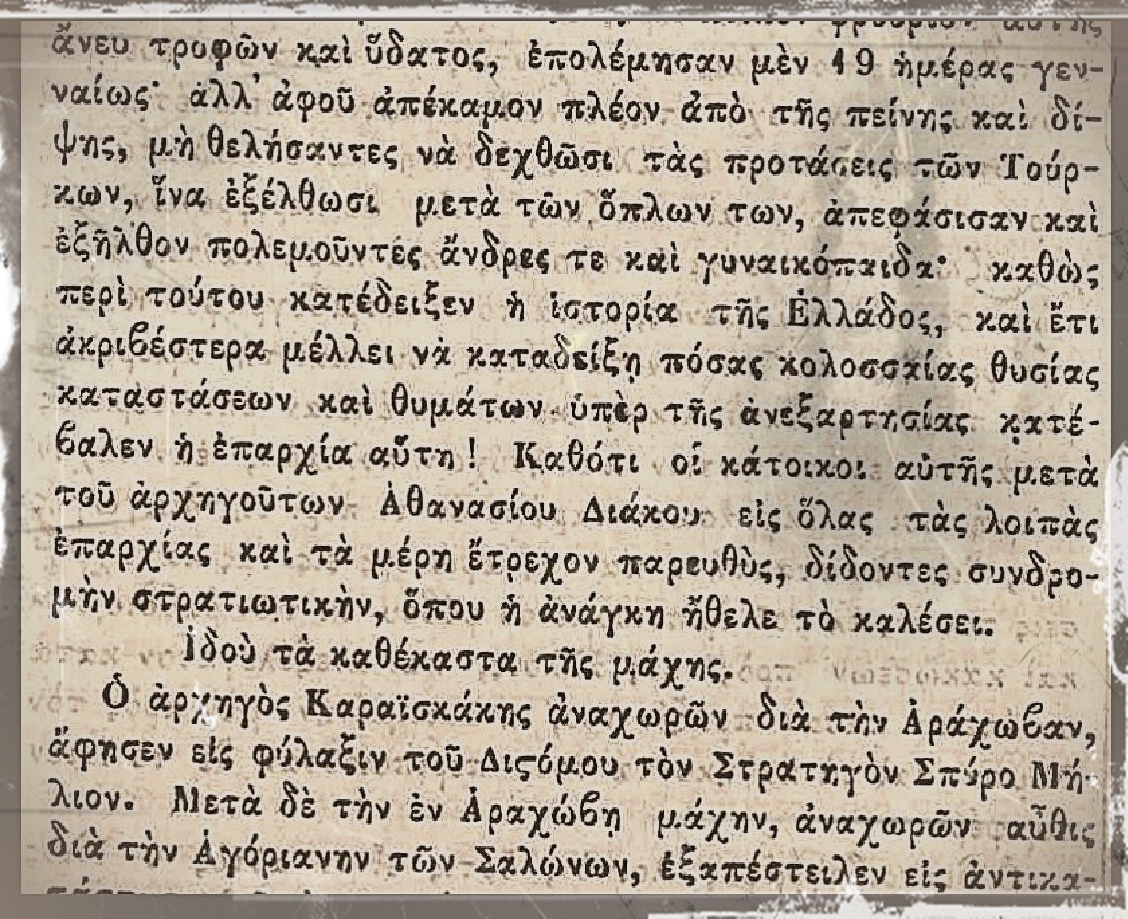 φρούριον αὐτῆς
ἄνευ τροφῶν καὶ ὕδατος, ἐπολέμησαν μὲν 19 ἡμέρας γεν-
ναίως· ἀλλ' ἀφοῦ ἀπέκαμον πλέον ἀπὸ τῆς πείνης καὶ δί-
ψης, μὴ θελήσαντες νὰ δεχθῶσι τὰς προτάσεις τῶν Τούρ-
κων, ἵνα ἐξέλθωσι μετὰ τῶν ὅπλων των, ἀπεφάσισαν καὶ
ἐξῆλθον πολεμοῦντες ἄνδρες τε καὶ γυναικόπαιδα· καθὼς
περὶ τούτου κατέδειξεν ἡ ἱστορία τῆς Ἑλλάδος, καὶ ἔτι
ἀκριβέστερα μέλλει νὰ καταδείξῃ πόσας κολοσσαίας θυσίας
καταστάσεων καὶ θυμάτων ὑπὲρ τῆς ἀνεξαρτησίας κατέ-
βαλεν ἡ ἐπαρχία αὕτη! Καθότι οἱ κάτοικοι αὐτῆς μετὰ
τοῦ ἀρχηγοῦτων Ἀθανασίου Διάκου εἰς ὅλας τὰς λοιπὰς
ἐπαρχίας καὶ τὰ μέρη ἔτρεχον παρευθὺς, δίδοντες συνδρο-
μὴν στρατιωτικὴν, ὅπου ἡ ἀνάγκη ἤθελε τὸ καλέσει.
Ἰδοὺ τὰ καθέκαστα τῆς μάχης.
Ὁ ἀρχηγὸς Καραϊσκάκης ἀναχωρῶν διὰ τὴν Ἀράχωβαν,
ἄφησεν εἰς φύλαξιν τοῦ Διςόμου τὸν Στρατηγὸν Σπύρο Μή-
λιον. Μετὰ δὲ τὴν ἐν Ἀραχώβῃ μάχην, ἀναχωρῶν αὖθις
διὰ τὴν Ἀγόριανην τῶν Σαλώνων, ἐξαπέστειλεν εἰς ἀντικα-